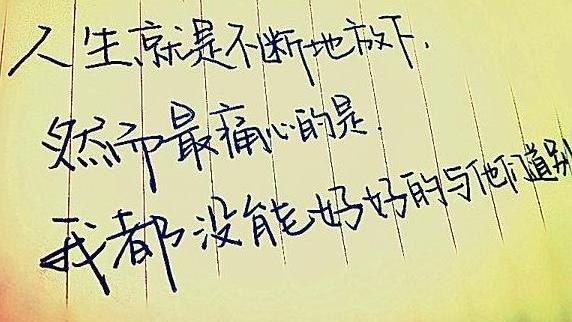 人生就是不断地放下.
然而最痛心的是.
我都没能好好的与他们道别